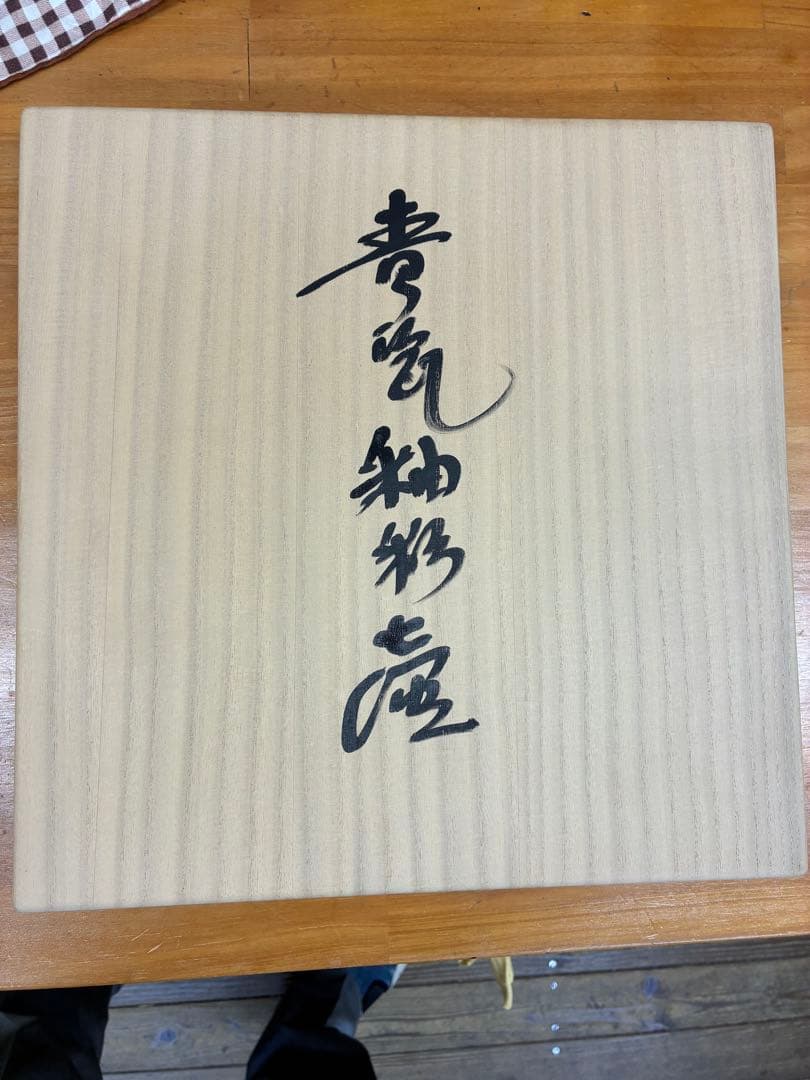 青瓷釉彩壺